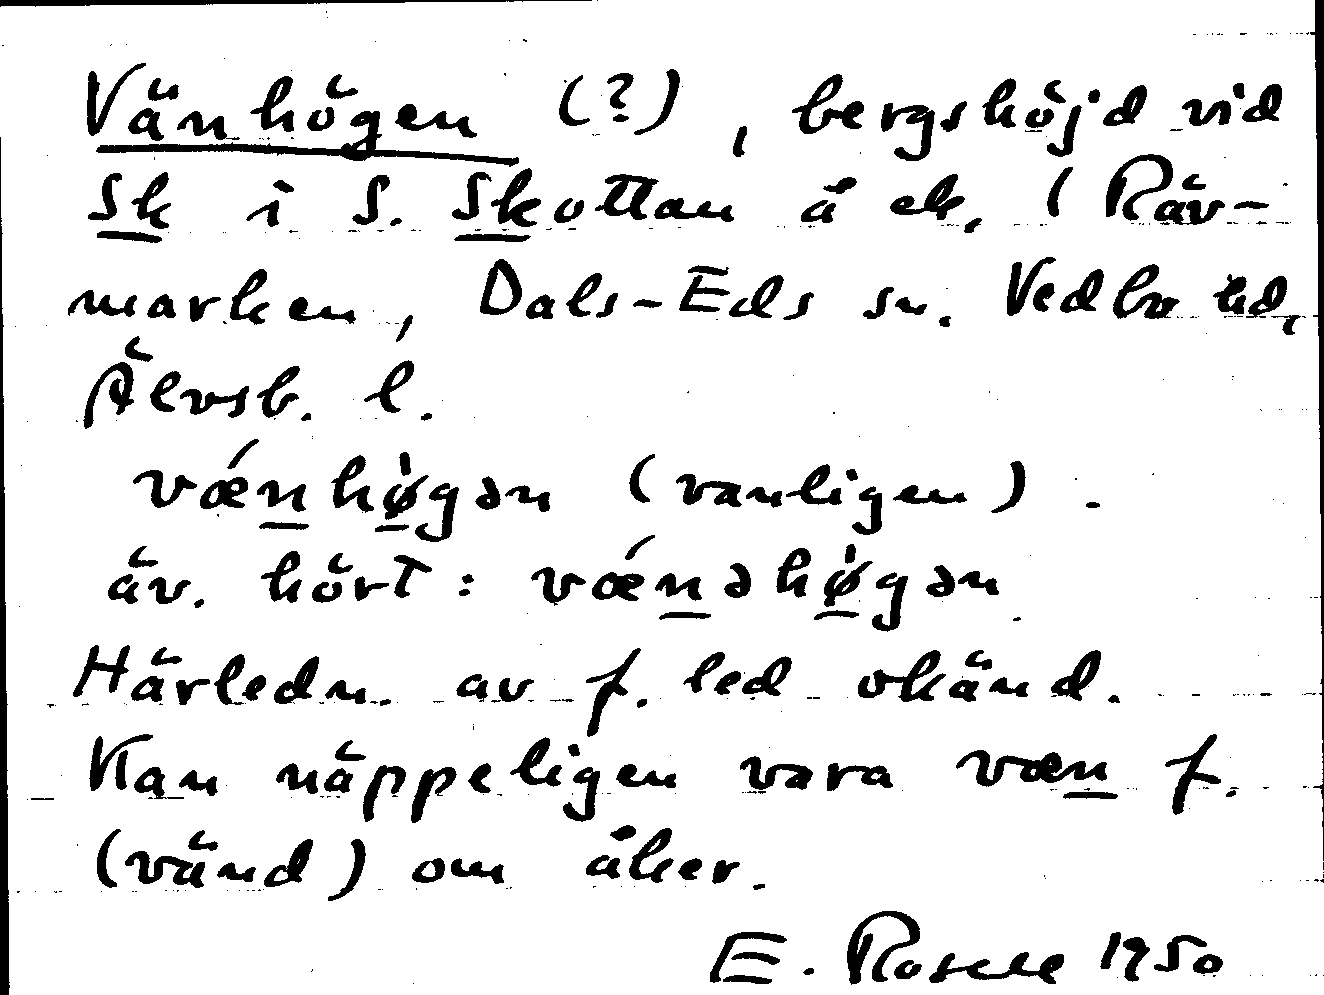 Vänhögen (?), bergshöjd vid
Sk i S. Skottan å ek. (Räv-
marken, Dals-Eds sn. Vedbo hd,
Älvsb. l.
vǽnhø̀gən (vanligen).
äv. hört: vǽnəhø̀gən
Härledn. av f. led okänd.
Kan näppeligen vara væn f.
(vänd) om åker.
E. Rosell 1950